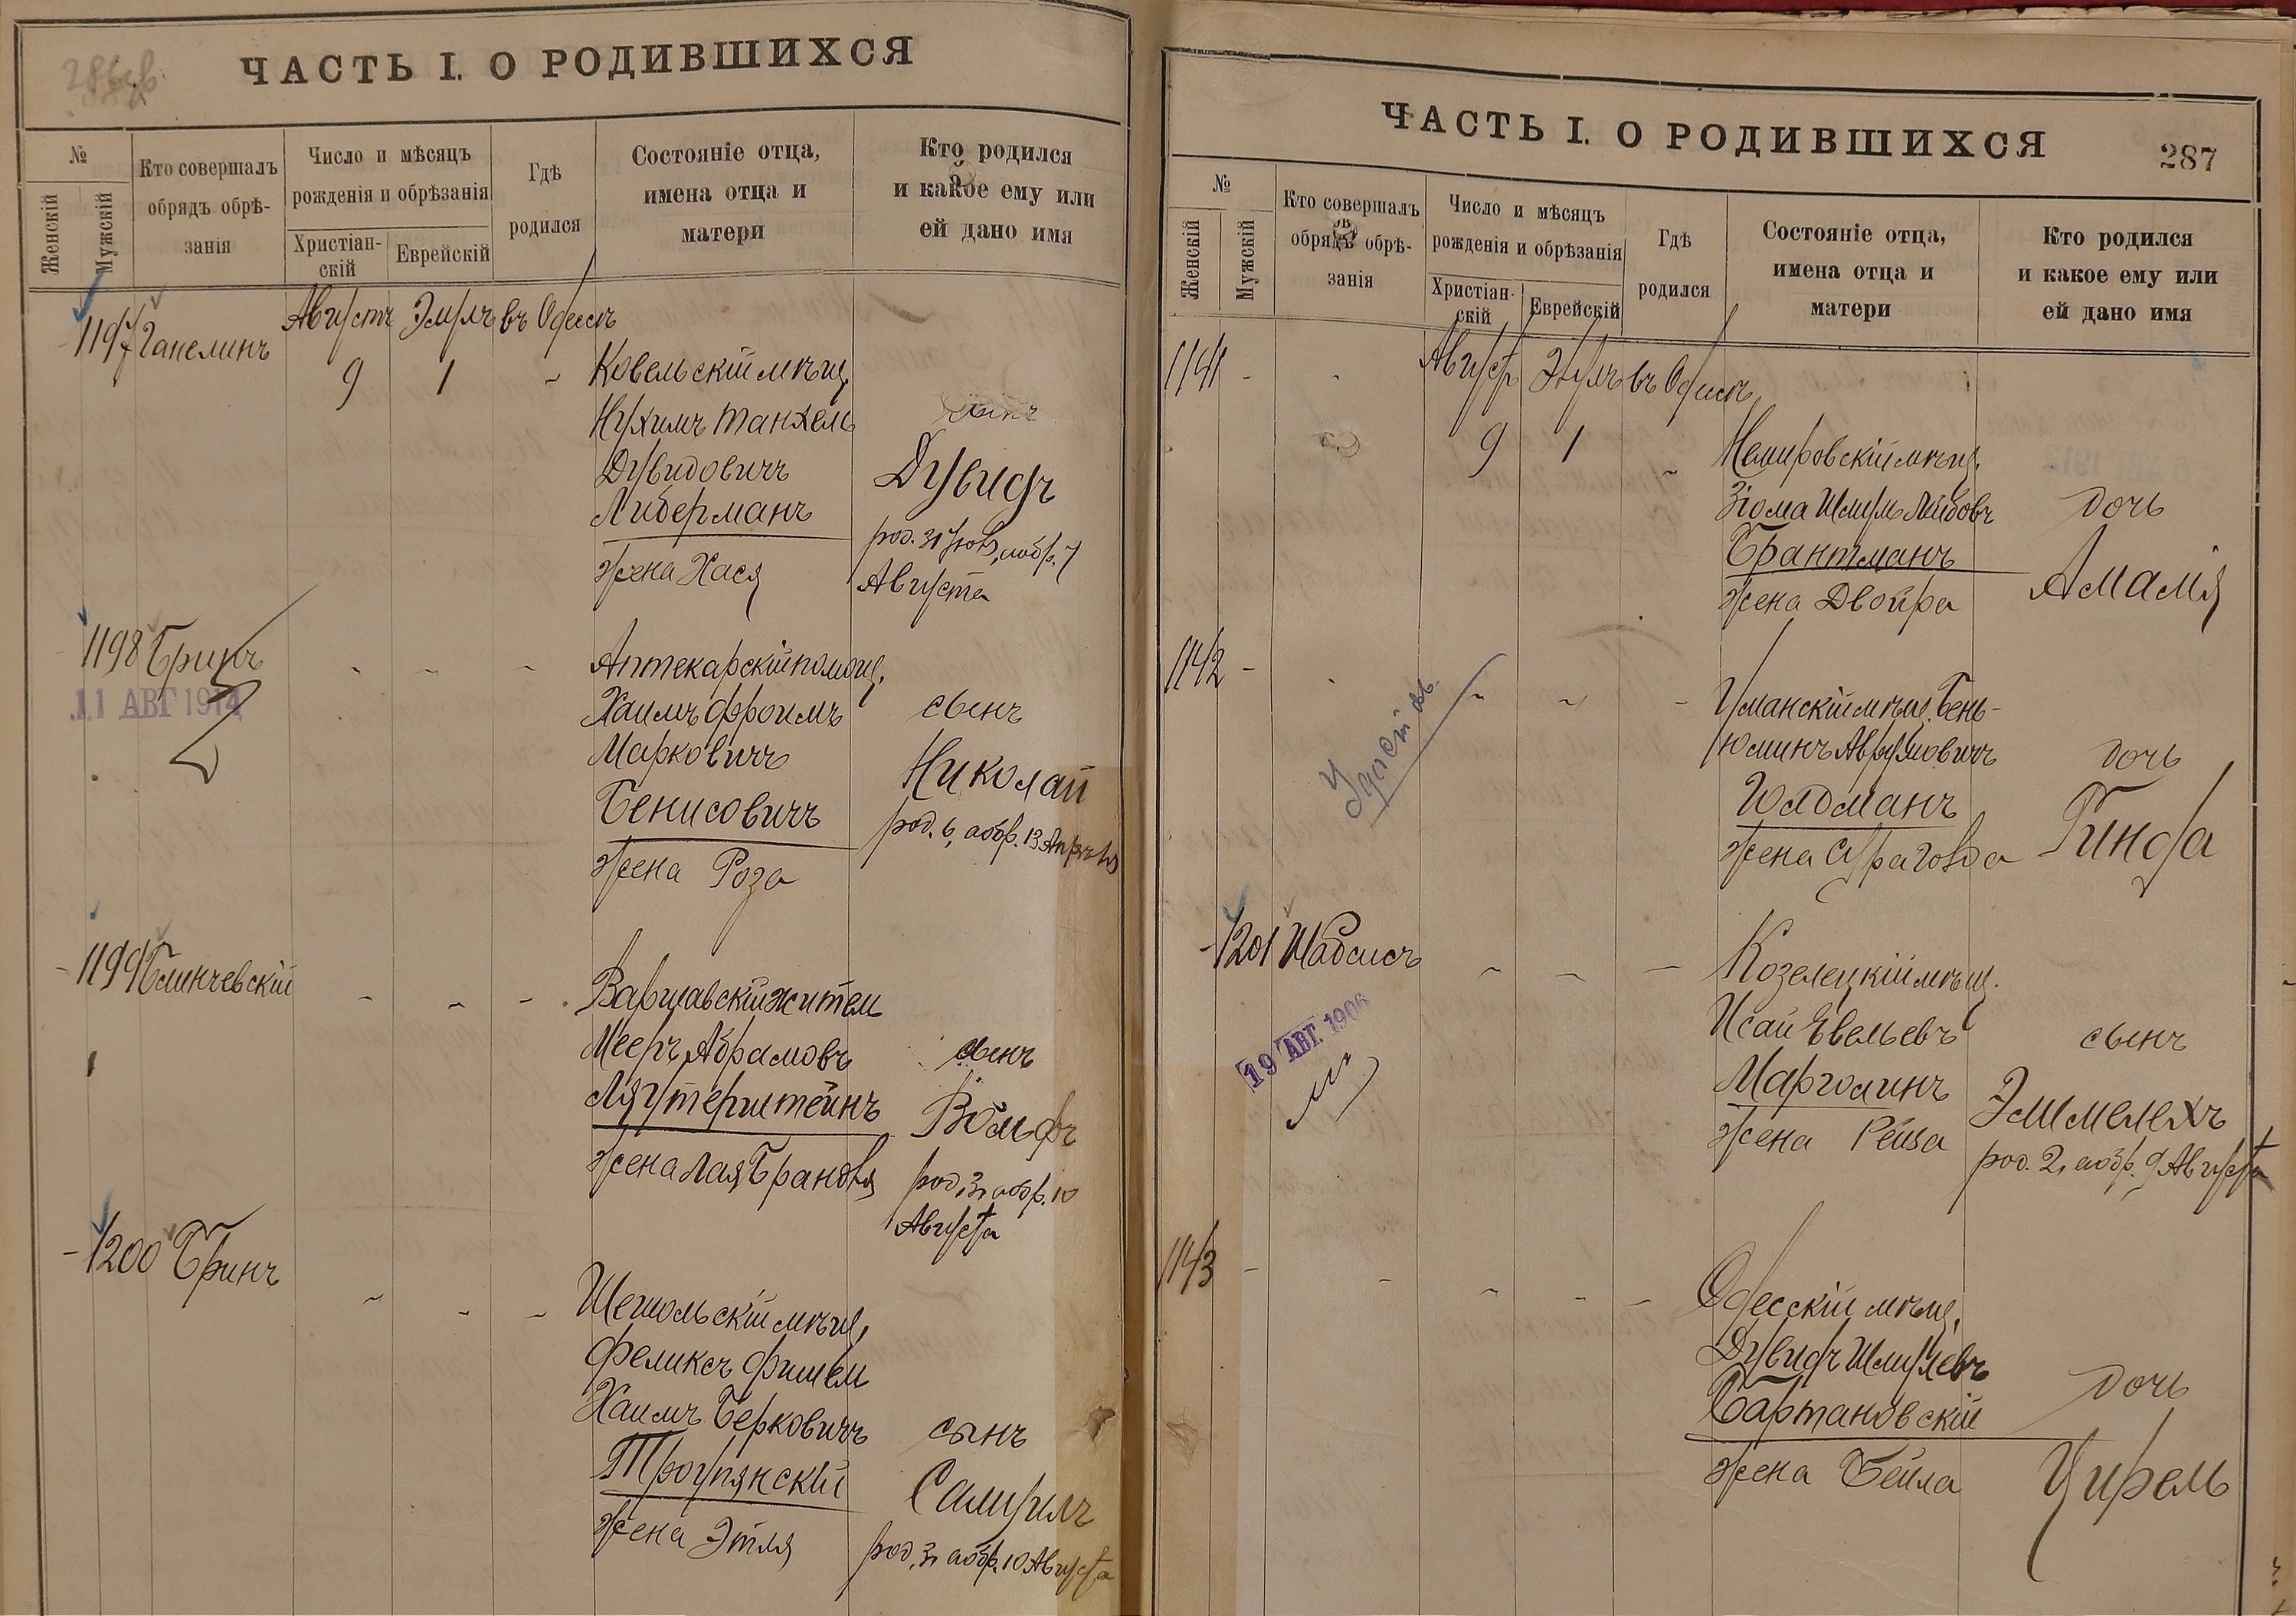 ЧАСТЬ I. О РОДИВШИХСЯ
№
Женскій
Мужскій
Кто совершалъ
обрядъ обрѣ-
занія
Число и мѣсяцъ
рожденія и обрѣзанія
Христіан-
скій
Еврейскій
Гдѣ
родился
Состояніе отца,
имена отца и
матери
Кто родился
и какое ему или
ей дано имя
1197 Ганелинъ
Августъ Элулъ въ Одессѣ
9 1 -
Ковельскій мѣщ.
Нухимъ Танхель
Дувидовичъ
Либерманъ
жена Хася
сынъ
Дувидъ
род. 31 Іюля, а обр. 7
Августа
1198 Бринъ
11 АВГ 1914
Аптекарскій помощ.
Хаимъ Фроимъ
Марковичъ
Бенисовичъ
жена Роза
сынъ
Николай
род. 6, а обр. 13 Апрѣля
1199 Блинчевскій
Варшавскій житель
Мееръ Абрамовъ
Ляутерштейнъ
жена Лая Брандля
сынъ
Вольфъ
род. 3, а обр. 10
Августа
1200 Бринъ
мѣщ.
Феликсъ Фишель
Хаимъ Берковичъ
Троупянскій
жена Этля
сынъ
Самуилъ
род. 3, а обр. 10 Августа
ЧАСТЬ I. О РОДИВШИХСЯ
287
№
Женскій
Мужскій
Кто совершалъ
обрядъ обрѣ-
занія
Число и мѣсяцъ
рожденія и обрѣзанія
Христіан-
скій
Еврейскій
Гдѣ
родился
Состояніе отца,
имена отца и
матери
Кто родился
и какое ему или
ей дано имя
1141 -
Августъ Элулъ въ Одессѣ
9 1 -
Немировскій мѣщ.
Зіома Шмуль Лейбовъ
Брантманъ
жена Двойра
дочь
Амалія
1142 -
Уманскій мѣщ. Бень-
юминъ Аврумовичъ
жена Сура Голда
дочь
Гинда
1201 Шабсисъ
19 АВГ. 1906
Козелецкій мѣщ.
Исай Евельевъ
Марголинъ
жена Рейза
сынъ
Элимелехъ
род. 2, а обр. 9 Августа
1143 -
Одесскій мѣщ.
Дувидъ Шмулевъ
Бартановскій
жена Бейла
дочь
Цирель